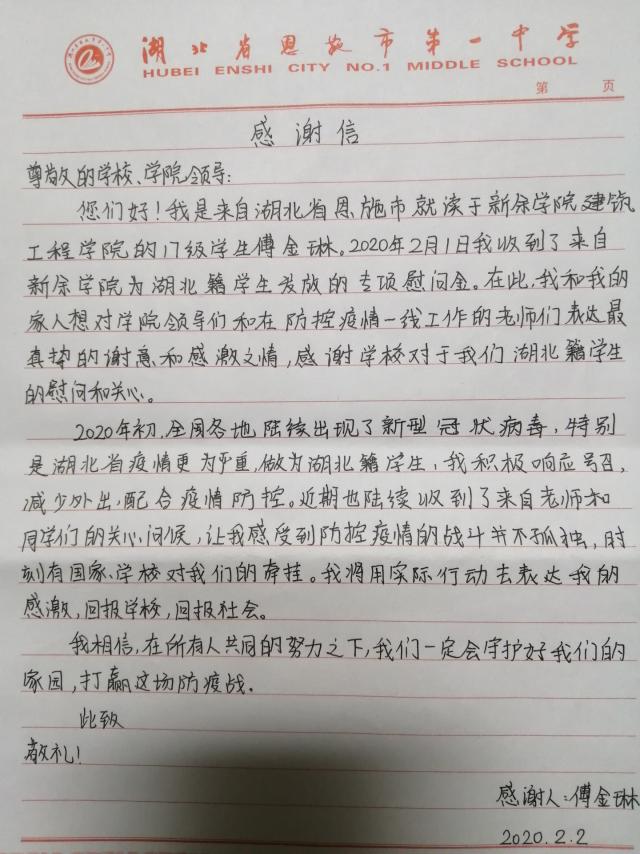 湖北省恩施市第一中学
HUBEI ENSHI CITY NO.1 MIDDLE SCHOOL
第 页
感谢信
尊敬的学校、学院领导:
您们好!我是来自湖北省恩施市就读于新余学院建筑
工程学院的17级学生傅金琳。2020年2月1日我收到了来自
新余学院为湖北籍学生发放的专项慰问金。在此,我和我的
家人想对学院领导们和在防控疫情一线工作的老师们表达最
真挚的谢意和感激之情,感谢学校对于我们湖北籍学生
的慰问和关心。
2020年初,全国各地陆续出现了新型冠状病毒,特别
是湖北省疫情更为严重,做为湖北籍学生,我积极响应号召,
减少外出,配合疫情防控。近期也陆续收到了来自老师和
同学们的关心问候,让我感受到防控疫情的战斗并不孤独,时
刻有国家、学校对我们的牵挂。我将用实际行动去表达我的
感激,回报学校,回报社会。
我相信,在所有人共同的努力之下,我们一定会守护好我们的
家园,打赢这场防疫战.
此致
敬礼!
感谢人:傅金琳
2020.2.2